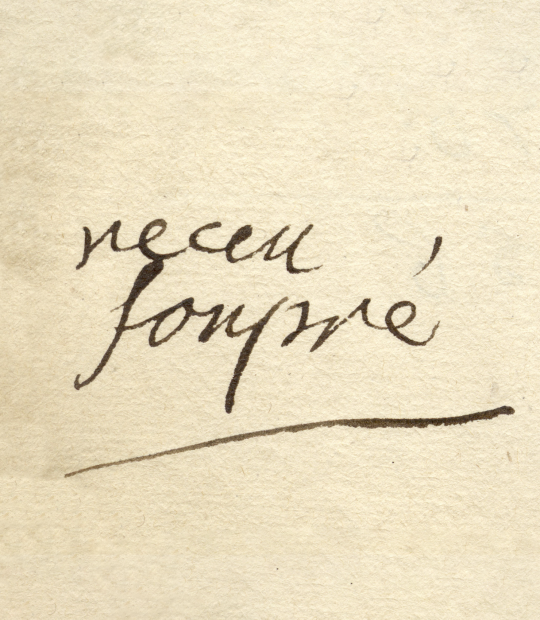 receu
fonpré